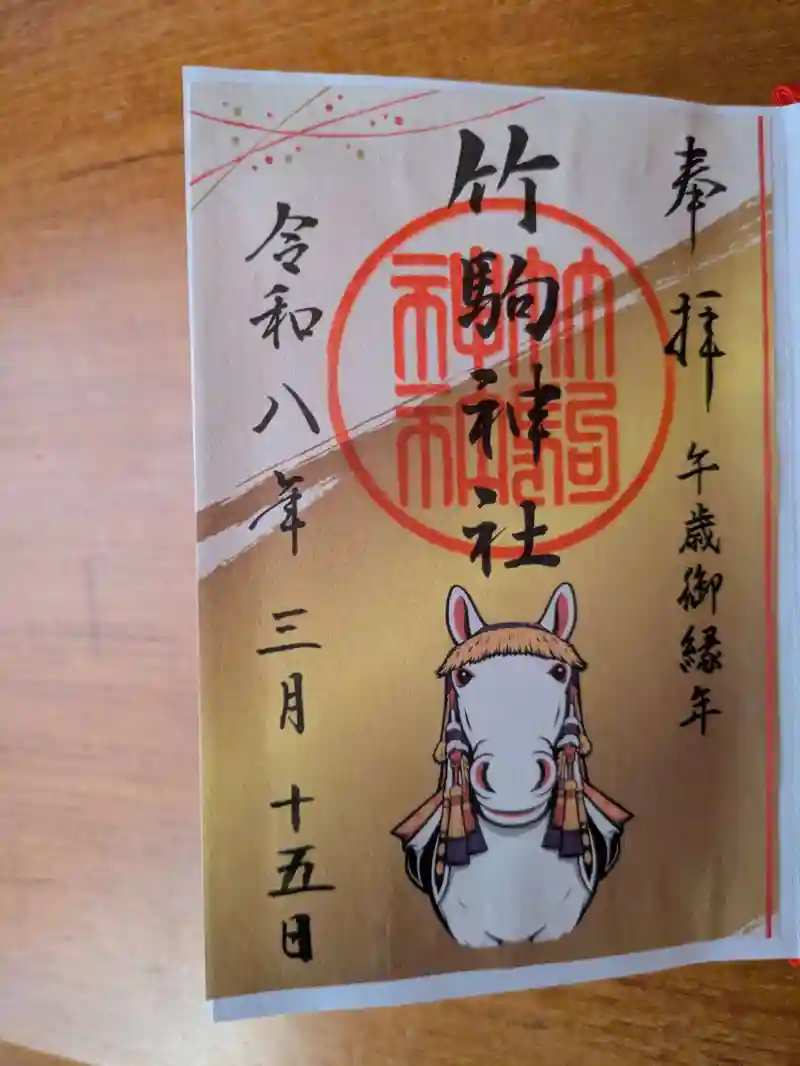 奉拝 午歳御縁年
竹駒神社
竹駒神社
令和八年三月十五日